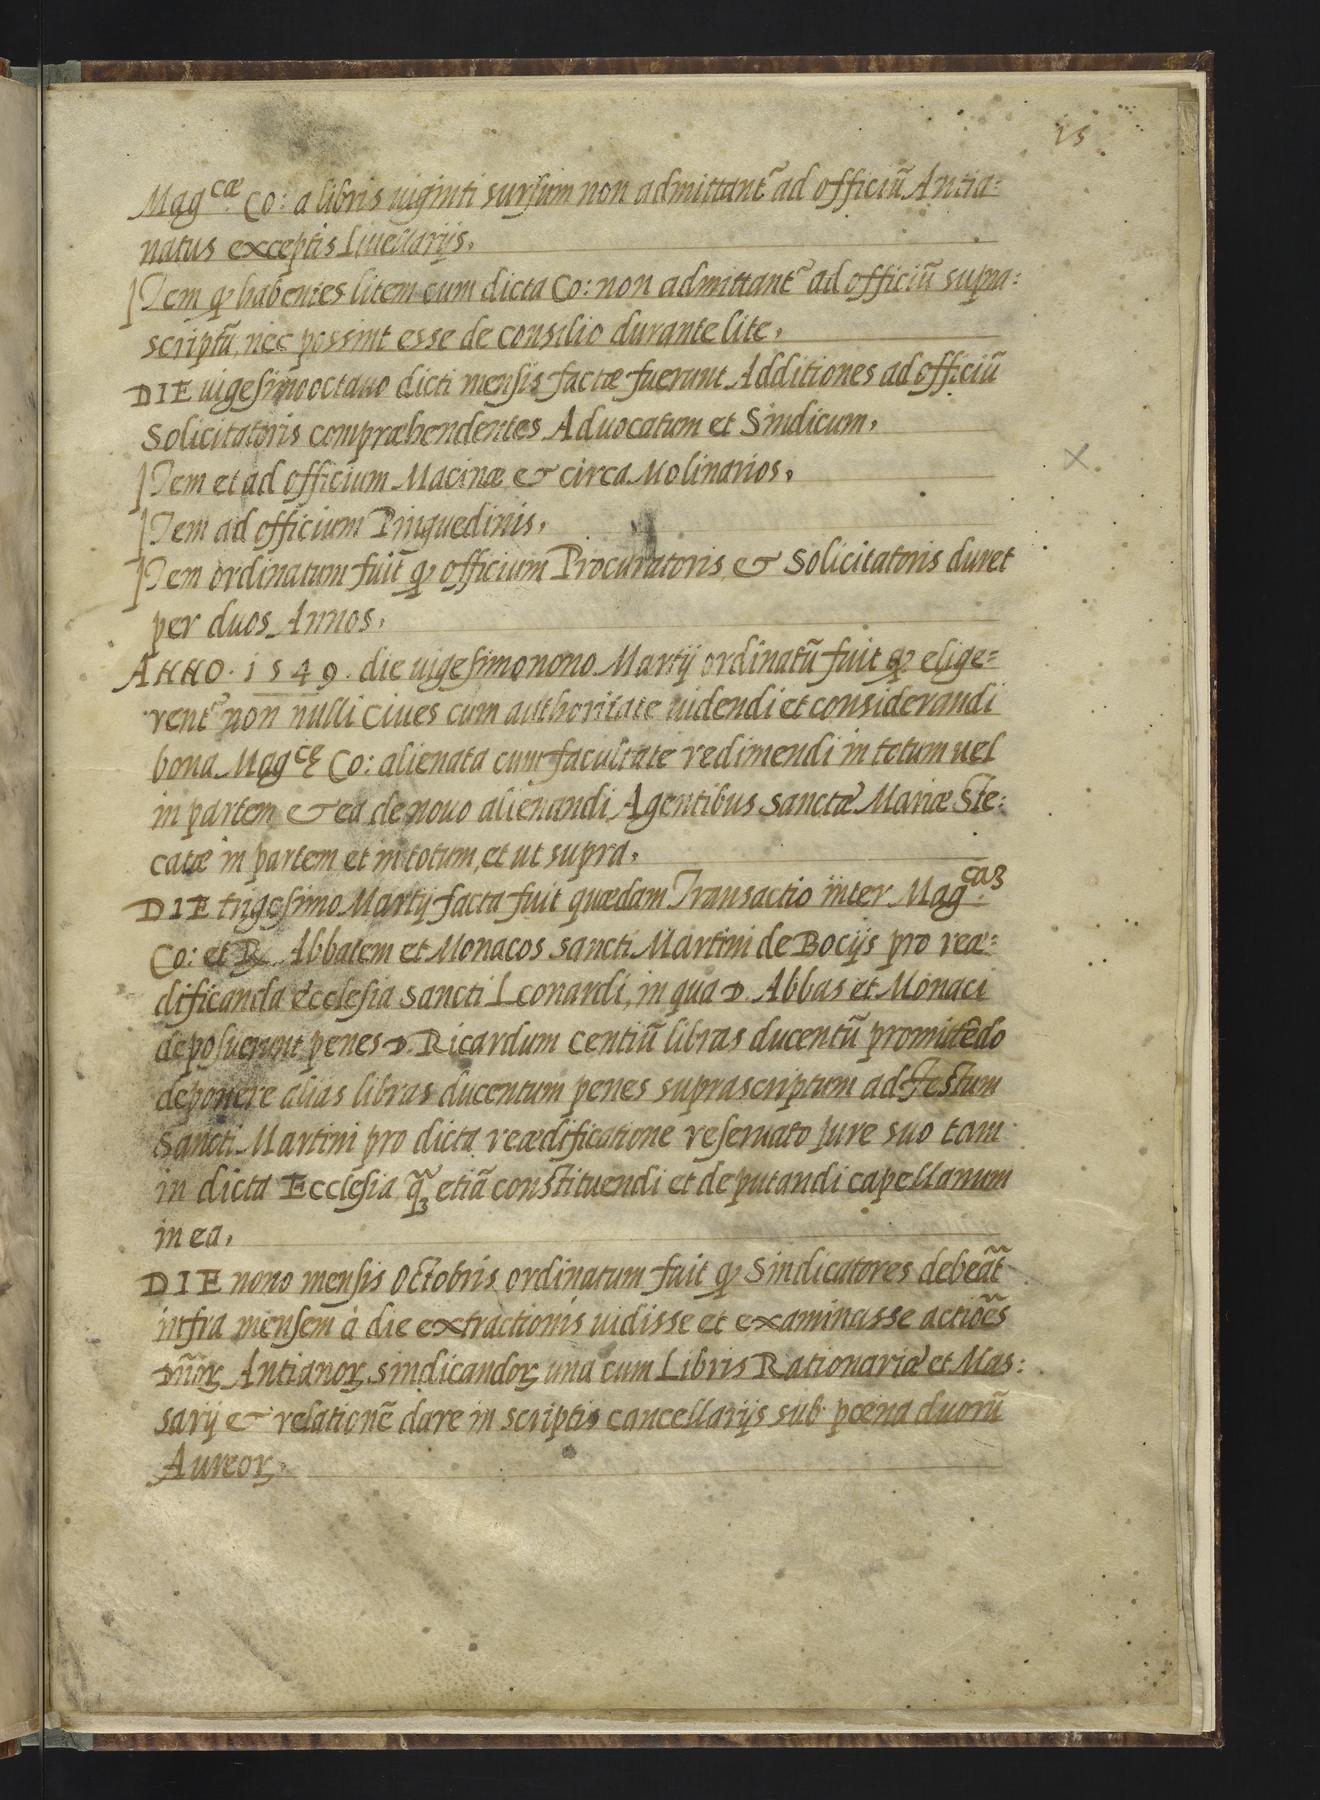 15
Mag.cæ Co: a libris uiginti sursum non admittant~ ad officiũ Antia=
natus exceptis Liuellarijs,
Item q̃ habentes litem cum dicta Co: non admittant~ ad officiũ supra=
scriptũ, nec possint esse de consilio durante lite,
DIE uigesimooctauo dicti mensis factæ fuerunt Additiones ad officiũ
Solicitatoris compræhendentes Aduocatum et Sindicum,
Item et ad officium Macinæ & circa Molinarios,
Item ad officium Pinguedinis,
Item ordinatum fuit q̃ officium Procuratoris, & Solicitatoris duret
per duos Annos,
ANNO. 1549. die uigesimonono Martij ordinatũ fuit q̃ elige=
rent~ non nulli Ciues cum authoritate uidendi et considerandi
bona Magcę Co: alienata cum facultate redimendi in totum uel
in partem & ea de nouo alienandi Agentibus Sanctæ Mariæ Ste:
catæ in partem et in totum, et ut supra,
DIE trigesimo Martij facta fuit quædam Transactio inter Mag.caʒ
Co: et R. Abbatem et Monacos Sancti Martini de Bocijs pro reæ=
dificanda ecclesia Sancti Leonardi, in qua D. Abbas et Monaci
deposuerunt penes D. Ricardum Centiũ libras ducentũ promittẽdo
deponere alias libras ducentum penes suprascriptum ad Festum
Sancti Martini pro dicta reædificatione reseruato Jure suo tam
in dicta Ecclesia, q̃ʒ etiã constituendi et deputandi capellanum
in ea,
DIE nono mensis Octobris ordinatum fuit q̃ Sindicatores debeãt
infra mensem à die extractionis uidisse et examinasse actiões
Dñorꝝ Antianorꝝ sindicandorꝝ una cum Libris Rationariæ et Mas:
sarij & relationẽ dare in scriptis cancellarijs sub poena duorũ
Aureorꝝ.